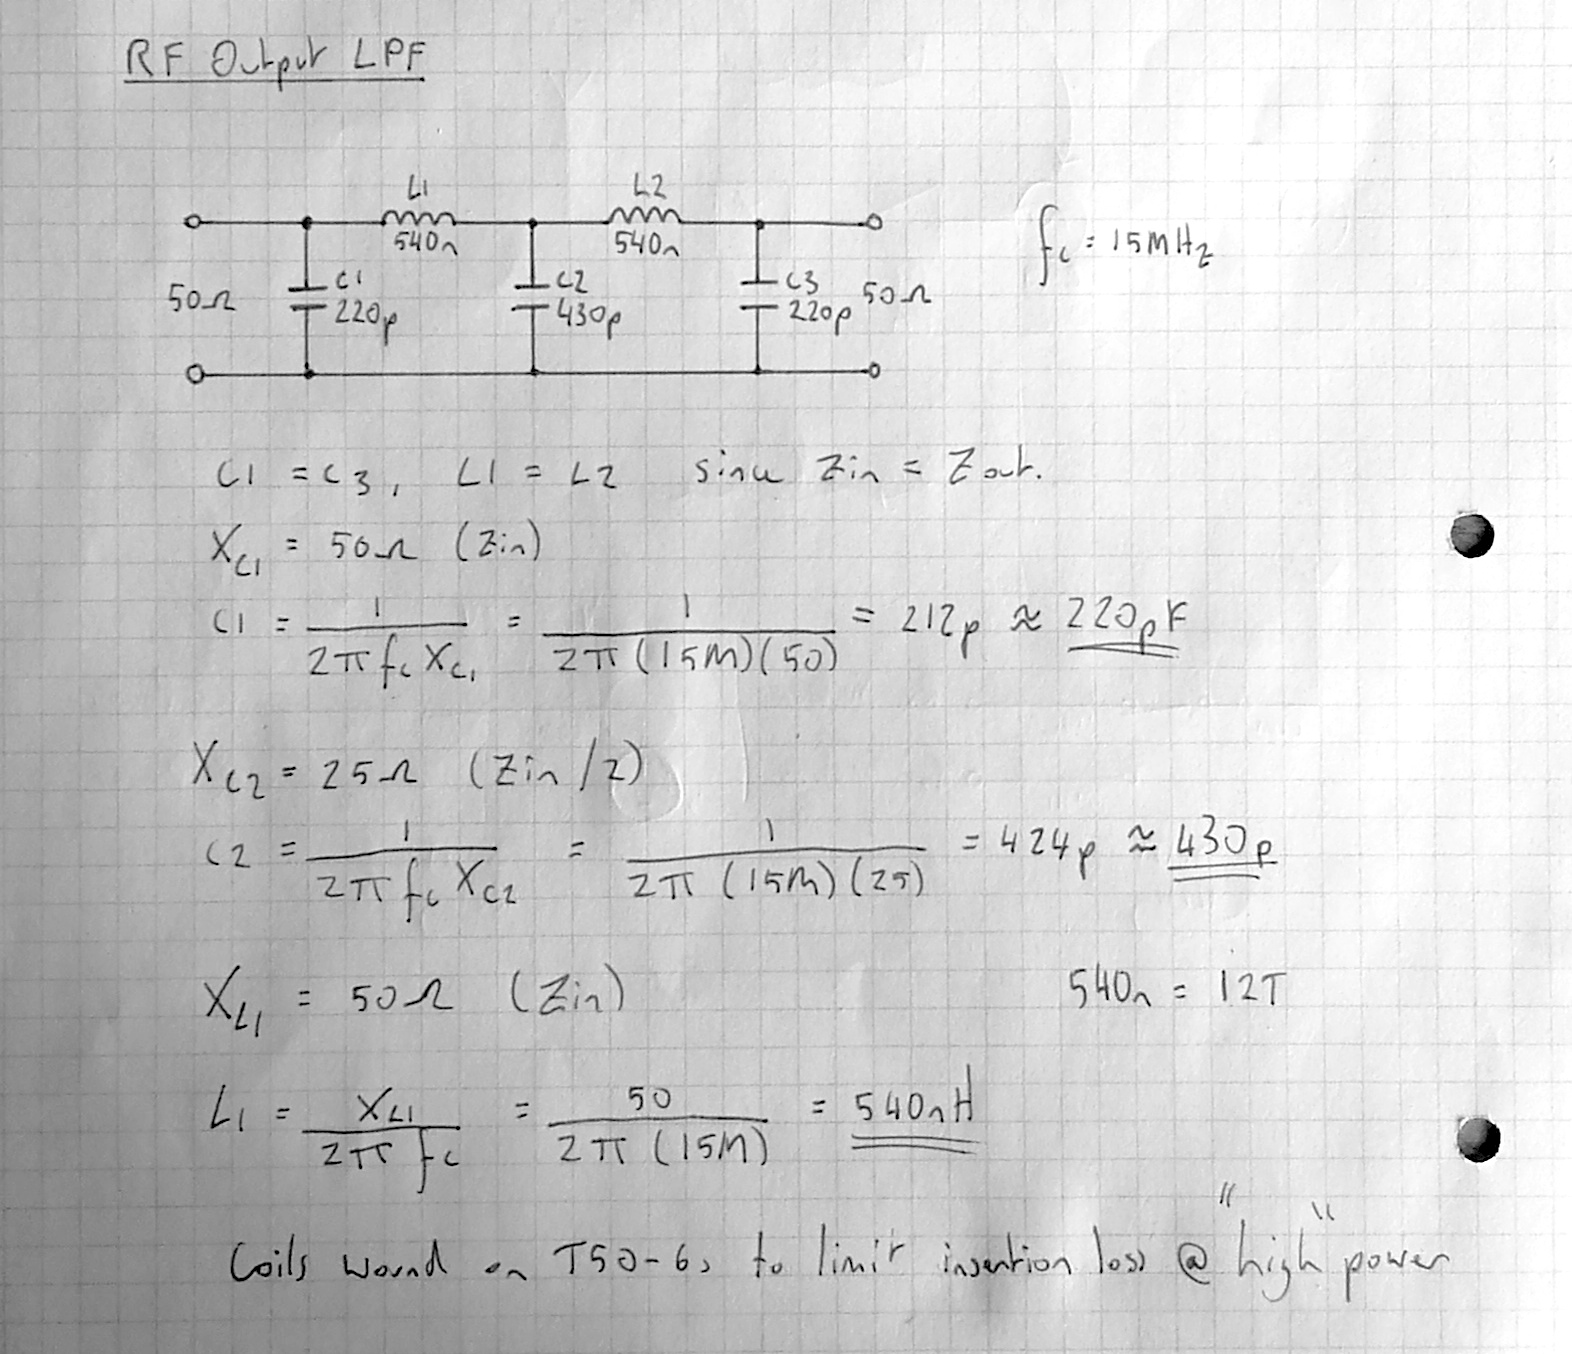 RF Output LPF
L1 L2
540n 540n
fc = 15MHz
50Ω C1 220p C2 430p C3 220p 50Ω
C1 = C3, L1 = L2 since Zin = Zout.
XC1 = 50Ω (Zin)
C1 = 1 / 2π fc XC1 = 1 / 2π (15M)(50) = 212p ≈ 220pF
XC2 = 25Ω (Zin/2)
C2 = 1 / 2π fc XC2 = 1 / 2π (15M)(25) = 424p ≈ 430p
XL1 = 50Ω (Zin) 540n = 12T
L1 = XL1 / 2π fc = 50 / 2π (15M) = 540nH
Coils wound on T50-6, to limit insertion loss @ "high" power